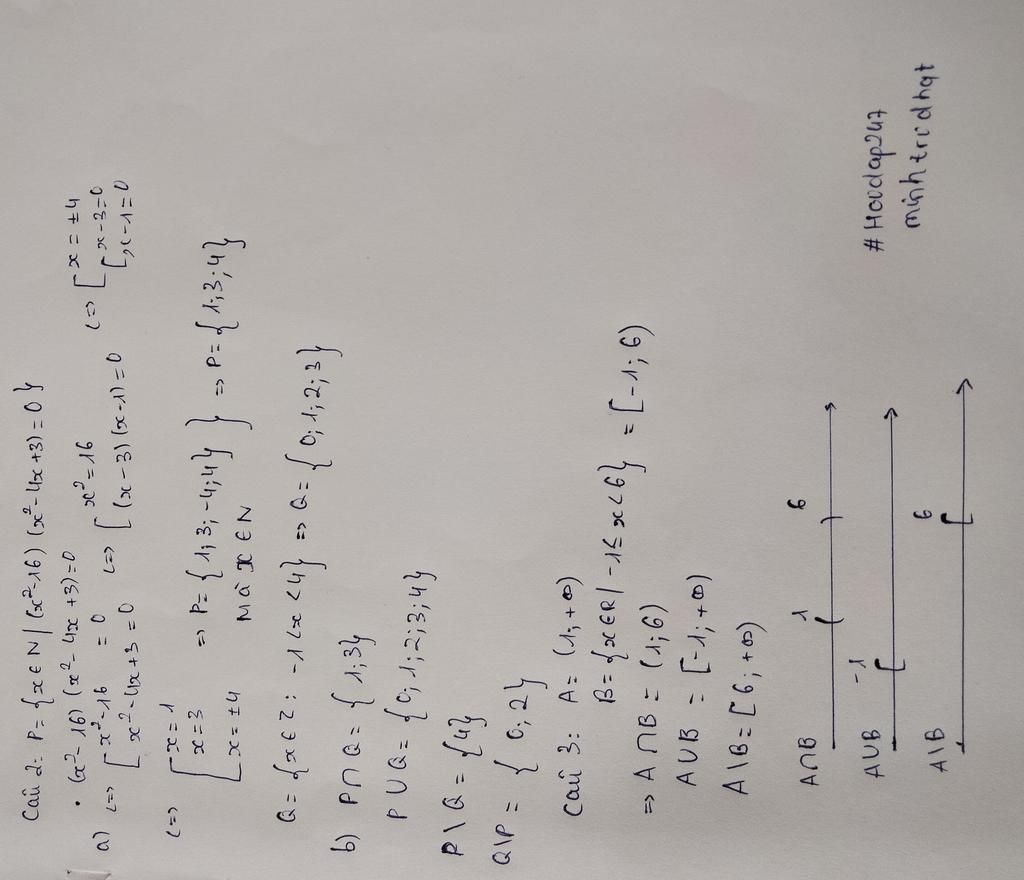 Câu 2: P={x ∈ N | (x²-16) (x²-4x+3)=0}
• (x²-16) (x²-4x+3)=0
a) <=> [ x²-16 = 0 <=> [ x²=16 <=> [ x = ±4
x²-4x+3=0 (x-3)(x-1)=0 [ x-3=0
x-1=0
<=> [ x=1 => P={1;3;-4;4} } => P={1;3;4}
x=3 Mà x ∈ N
x=±4
Q={x ∈ Z: -1<x<4} => Q={0;1;2;3}
b) P∩Q={1;3}
P∪Q={0;1;2;3;4}
P\Q={4}
Q\P={0;2}
Câu 3: A=(1;+∞)
B={x∈R/-1≤x<6} =[-1;6)
=> A∩B=(1;6)
A∪B=[-1;+∞)
A\B=[6;+∞)
A∩B ( 1 ) 6
A∪B [ -1
A\B [ 6
#Hoidap247
minhtridhqt